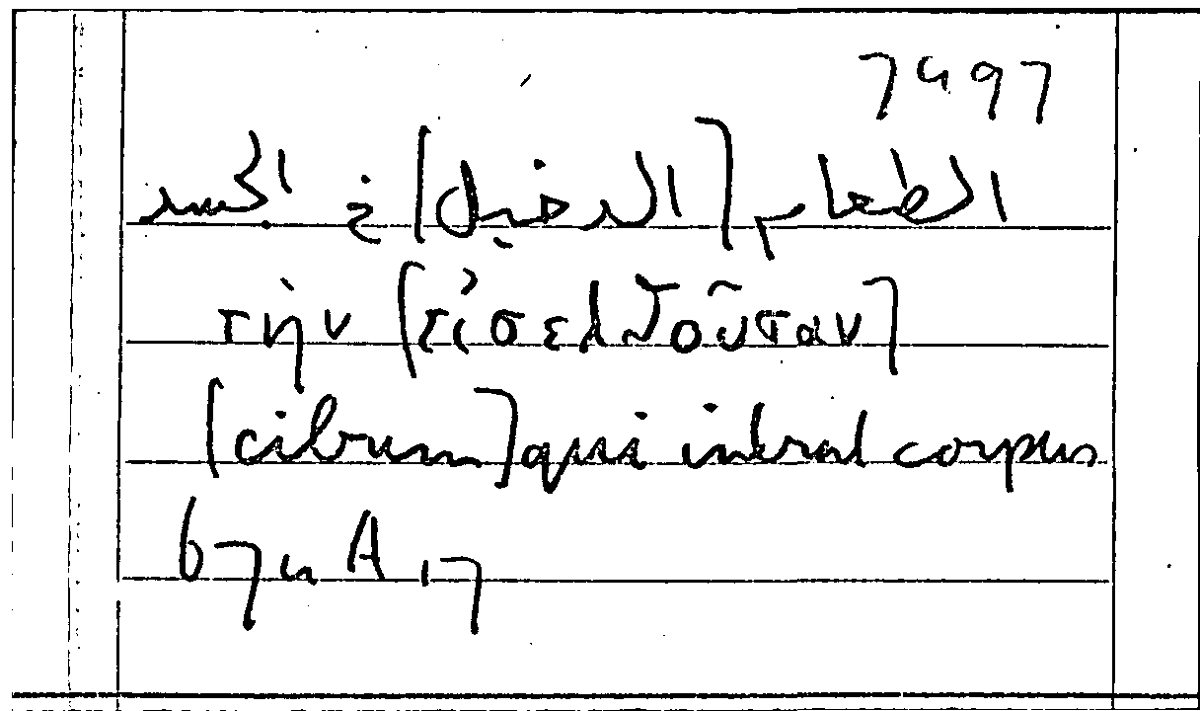 7497
الطعام [الدخيل] في الجسد
τὴν [εἰσελθοῦσαν]
[cibum] qui intrat corpus
674 A 17